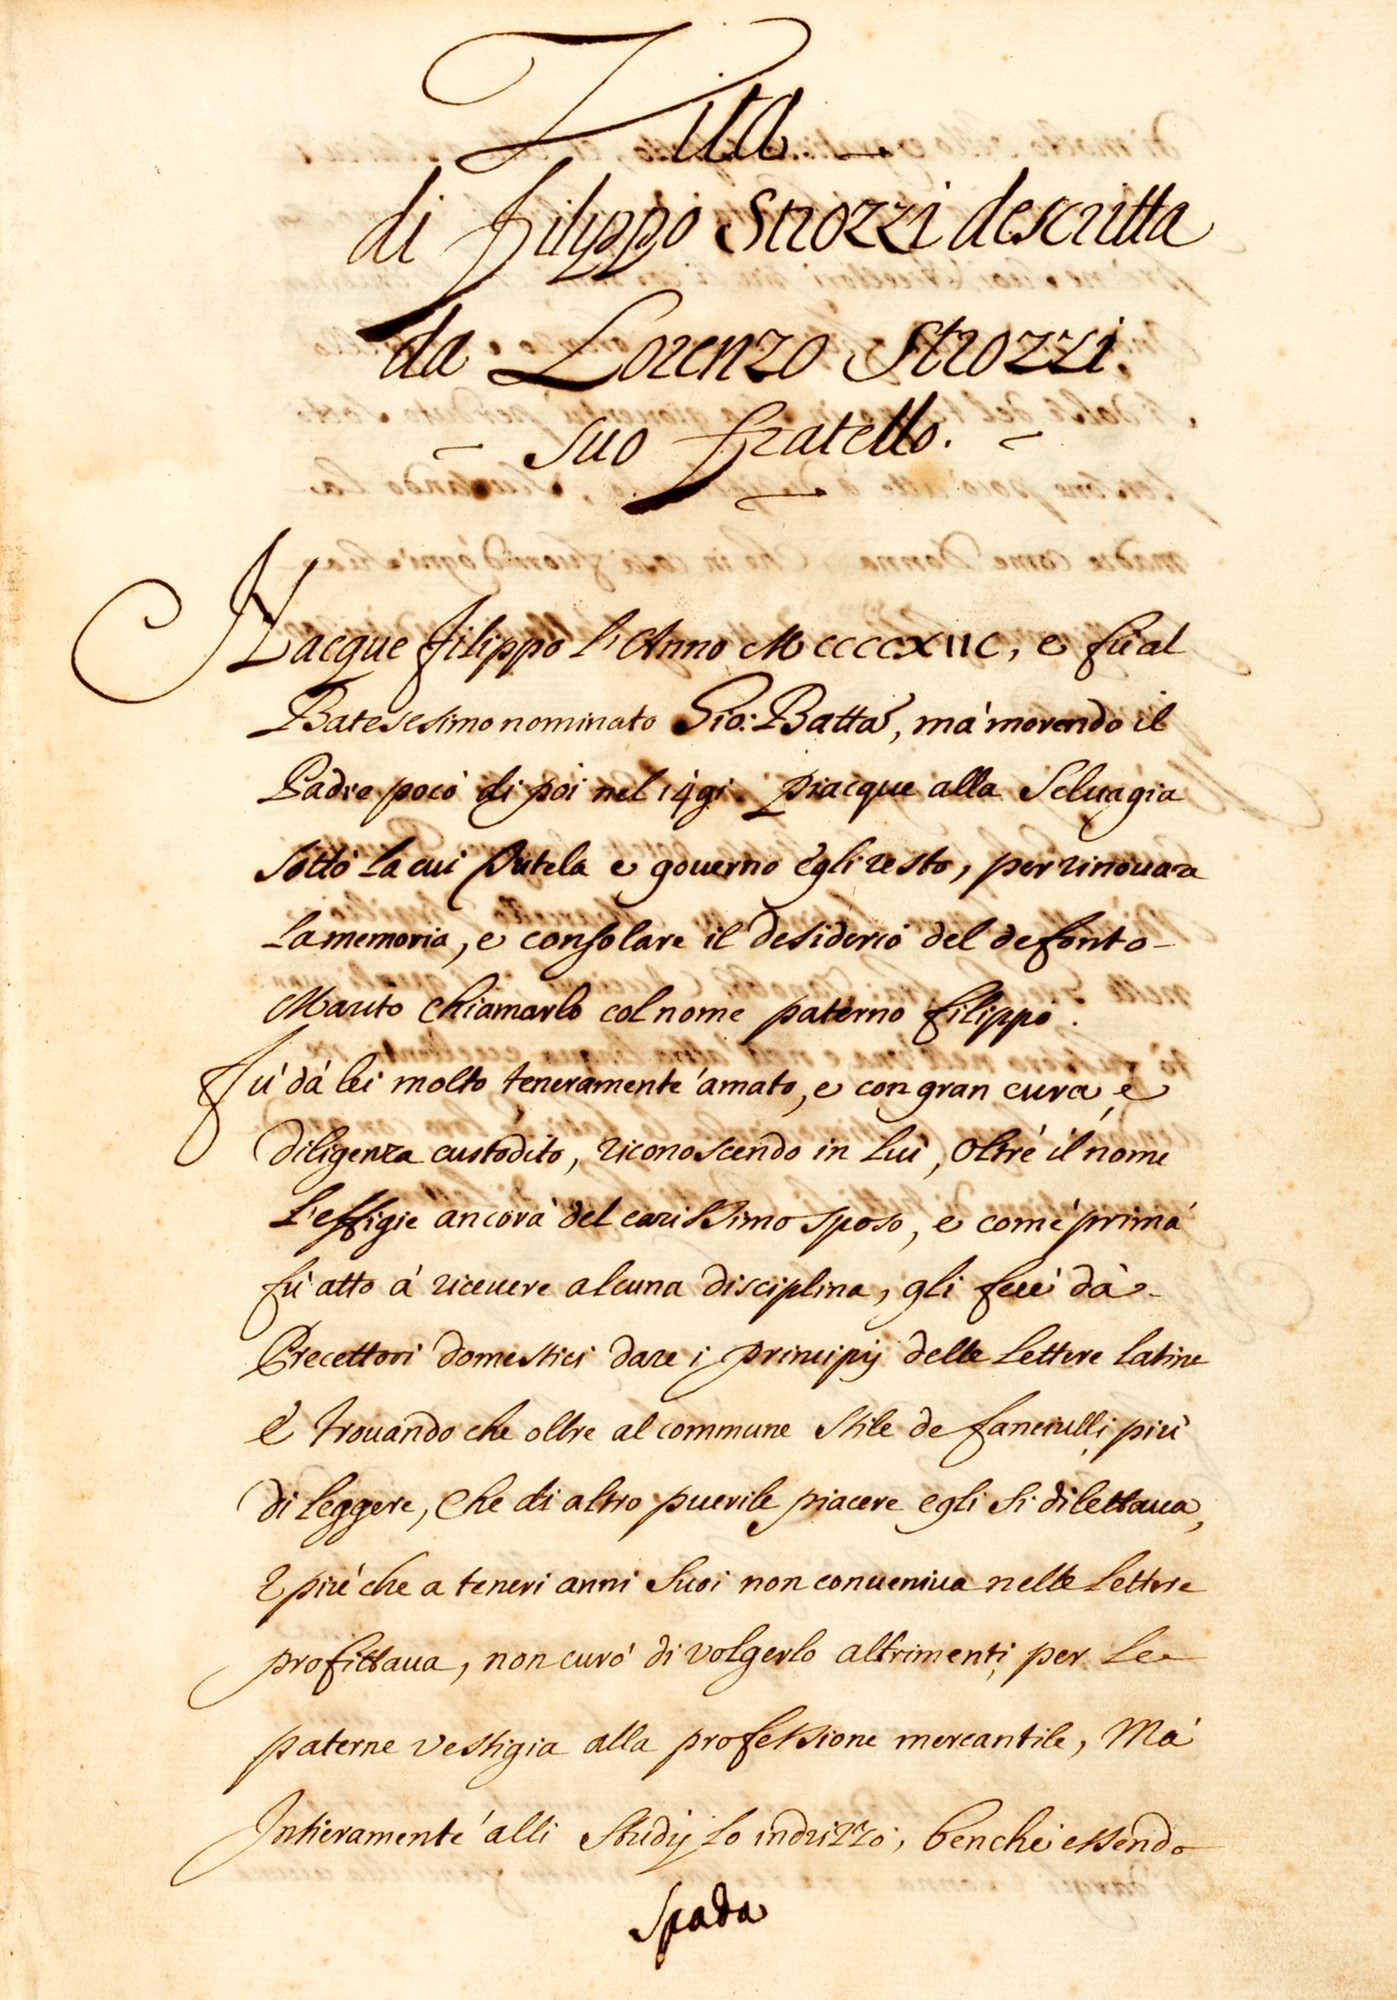 Vita
di Filippo Strozzi descritta
da Lorenzo Strozzi.
suo fratello.
Nacque Filippo l'Anno MCCCCXIIC, e fù al
Batesesimo nominato Gio: Batta, mà morendo il
Padre poco di poi nel 1491. piacque alla Seluagia
sotto la cui Tutela e gouerno egli resto, per rinouare
la memoria, e consolare il desiderio del defonto
Marito chiamarlo col nome paterno Filippo.
Fù dà lei molto teneramente amato, e con gran cura, e
diligenza custodito, riconoscendo in lui, oltre il nome
l'effigie ancora del carissimo sposo, e come prima
fù atto à riceuere alcuna disciplina, gli fece dà
Precettori domestici dare i principij delle lettere latine
E trouando che oltre al commune stile de fanciulli più
di leggere, che di altro puerile piacere egli si dilettaua,
e più che a teneri anni suoi non conueniua nelle lettere
profittaua, non curò di volgerlo altrimenti per le
paterne vestigia alla professione mercantile, Mà
Intieramente alli studij lo indrizzò, benche essendo
Spada